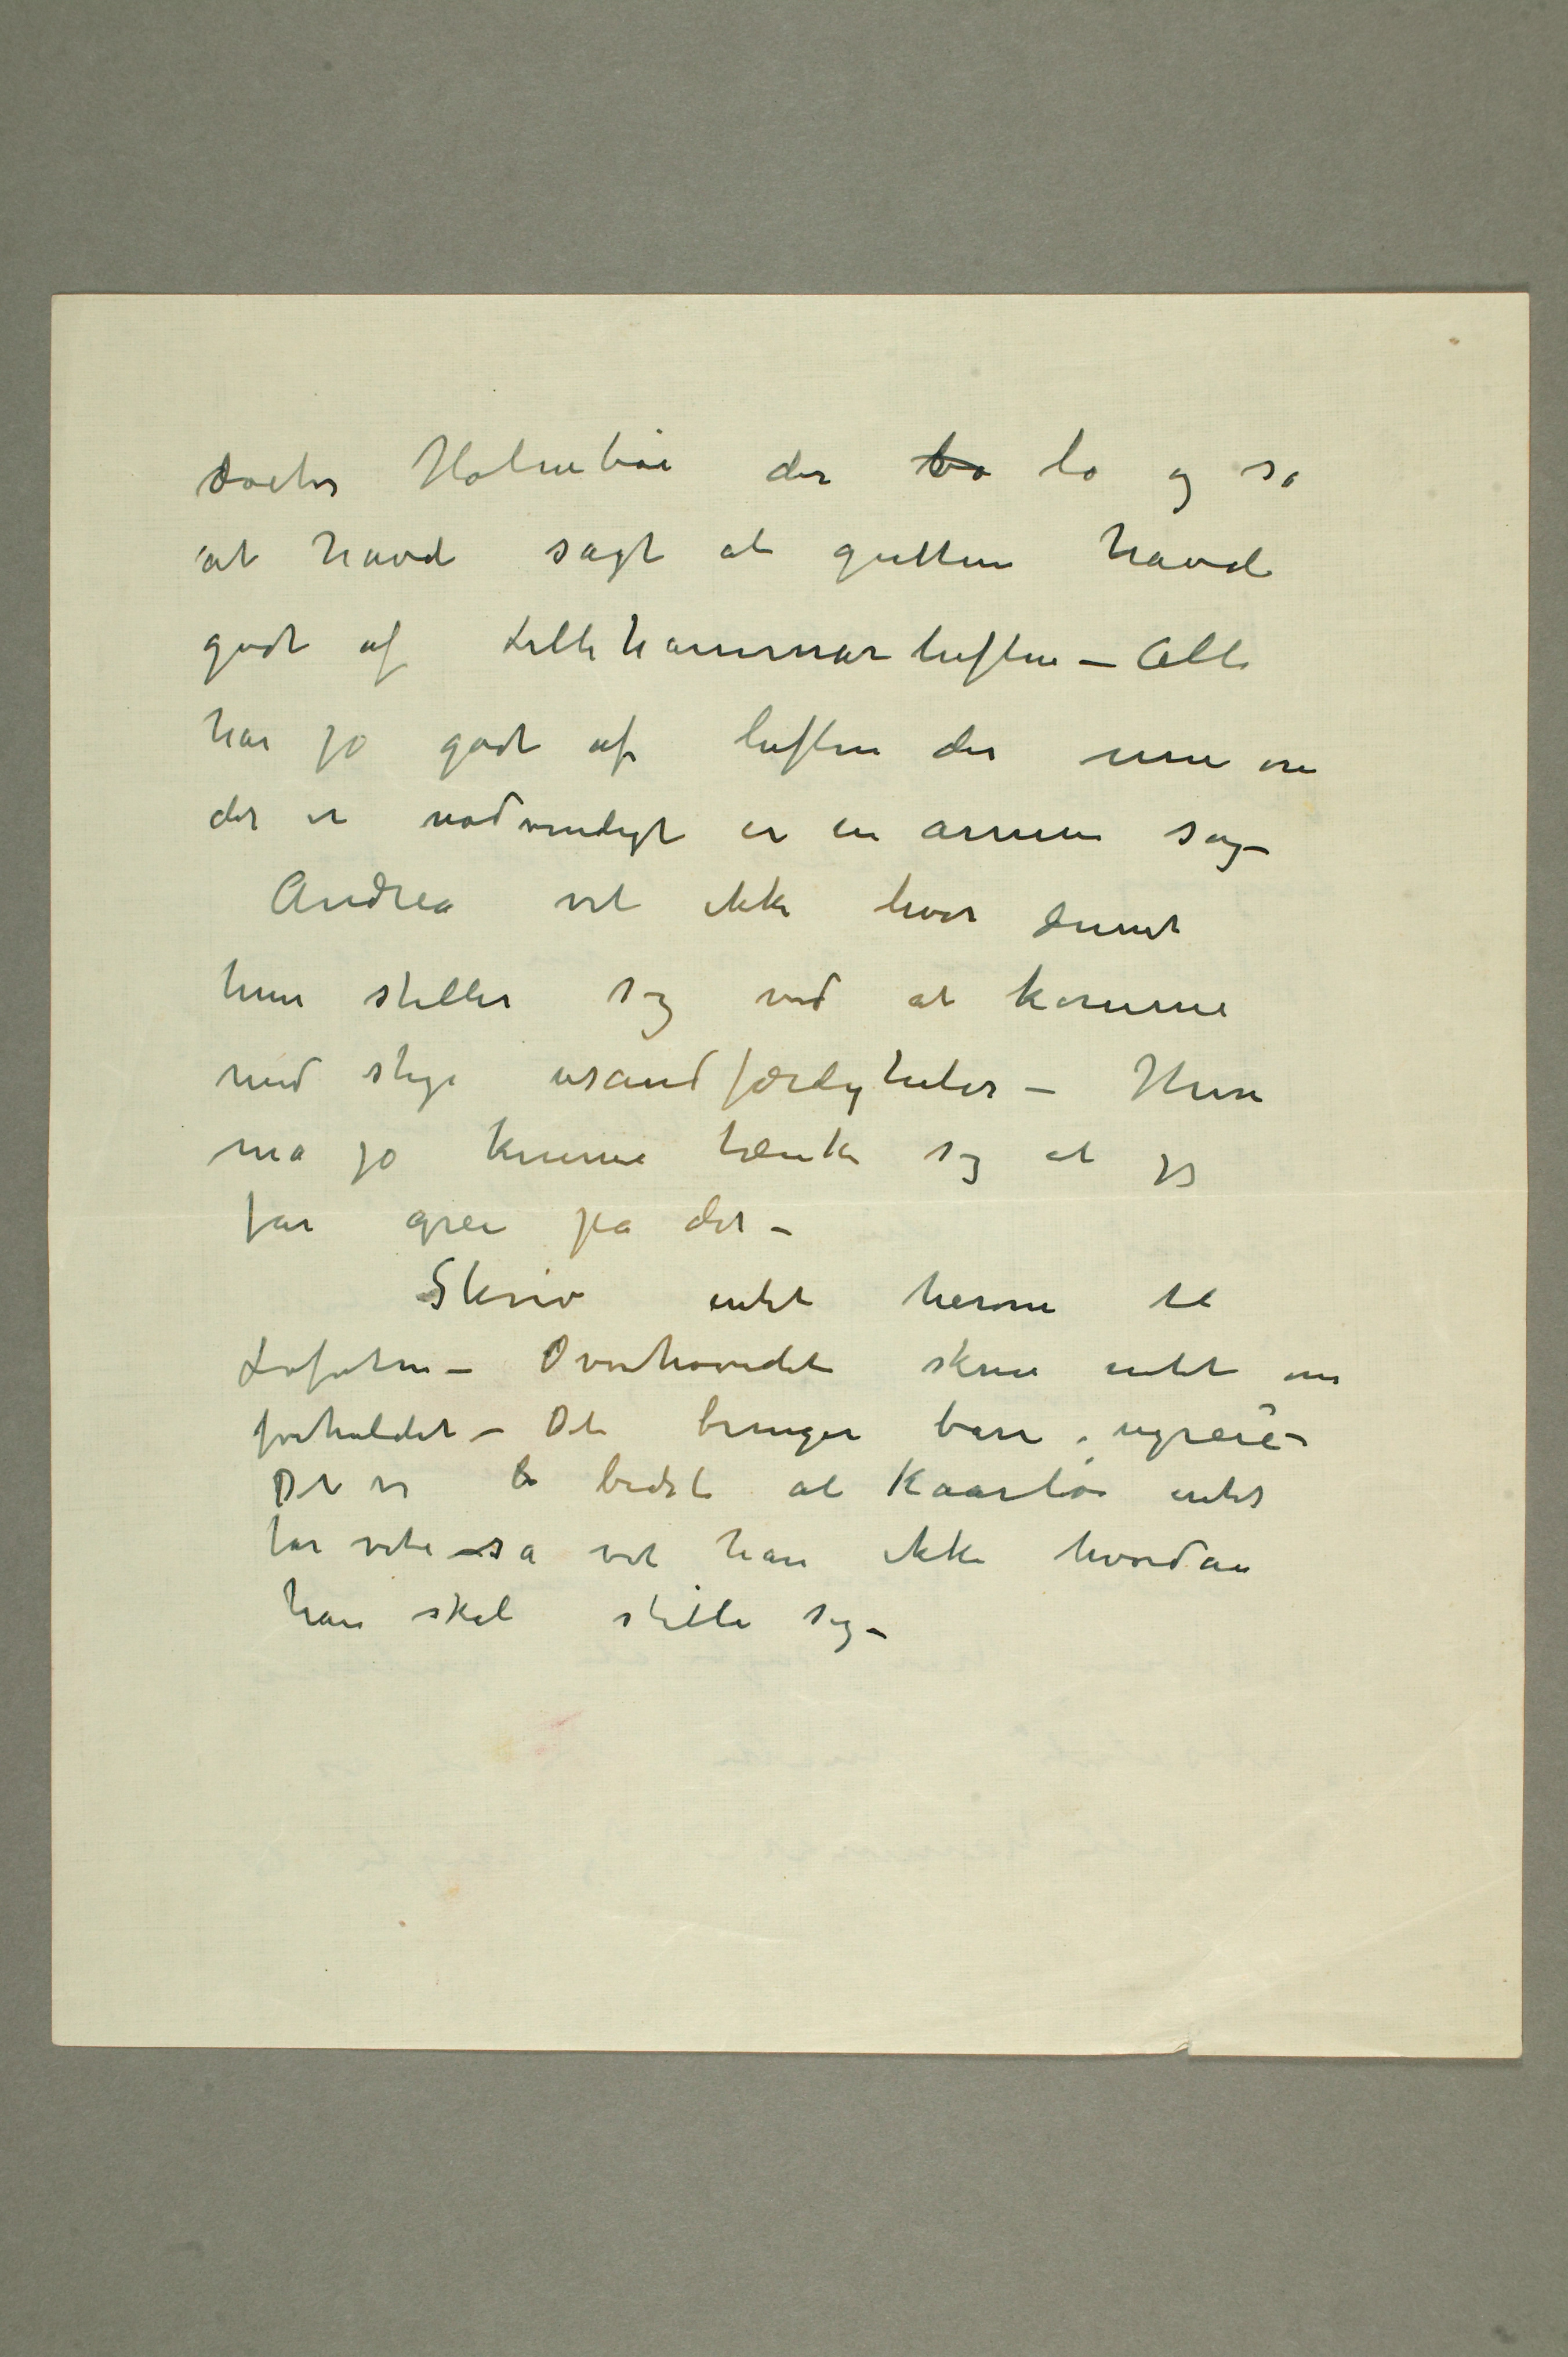 Doctor Holmboe der bo lo og sa
at havde sagt at gutten havde
godt af Lillehammerluften – Alle
har jo godt af luften der men om
det er nødvendigt er en annen sag –
Andrea vet ikke hvor dumt
hun stiller sig ved at komme
med slige usandfærdigheter – Hun
må jo kunne tænke sig at jeg
får grei på det –
Skriv intet herom til
Lofoten – Overhovedet skriv intet om
forholdet – Det bringer bare ugreie –
Det er b bedst at Kaarbøe intet
får vite – så vet han ikke hvordan
han skal stille sig –